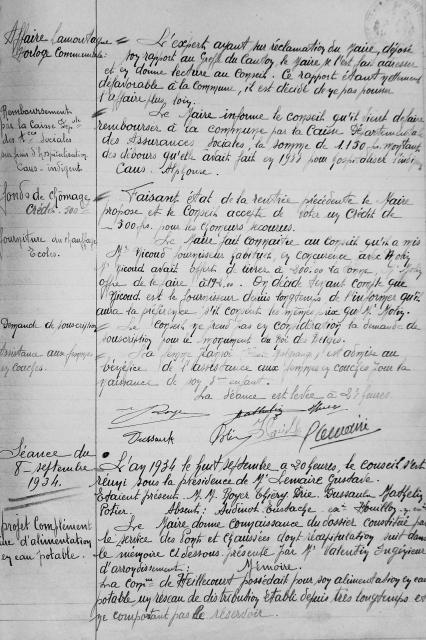 Affaire Lamontagne
Horloge Communale:
L'expert ayant sur réclamation du Maire, déposé
son rapport au Greffe du Canton, le Maire se l'est fait adresser
et en donne lecture au Conseil. Ce rapport étant nettement
défavorable à la commune, il est décidé de ne pas pousser
l'affaire plus loin.
Remboursement
par la Caisse Dep.
des Ass. Sociales
Caus - indigent
Le Maire informe le conseil qu'il vient de faire
rembourser à la commune par la Caisse Départementale
des Assurances Sociales, la somme de 1130 frs montant
des débours qu'elle avait fait en 1933 pour hospitaliser
Caus. Alphonse.
fonds de chômage
Crédit - 500
Faisant état de la rentrée précédente le Maire
propose et le Conseil accepte de voter un Crédit de
500 frs. pour les chômeurs secourus.
Fourniture du chauffage
Écoles.
Le Maire fait connaître au conseil qu'il a mis
Mr Nicoud fournisseur habituel en concurrence avec
Nicoud ayant offert de livrer à 200.00 la tonne,
offre de le faire à On décide tenant compte que
Nicoud est le fournisseur depuis longtemps de l'informer qu'il
aura la préférence s'il consent les mêmes prix que Mr
Demande de souscription
Le Conseil ne prend pas en considération la demande de
souscription pour le monument du Roi des Belges.
Assistance aux femmes
en couches.
La femme est admise au
bénéfice de l'assistance aux femmes en couches pour la
naissance de son enfant.
La Séance est levée à 23 heures
Royer Mathelin Thiery
Dussault Potier Lemaire
Séance du
8 septembre
1934.
L'an 1934 le huit septembre à 20 heures, le conseil s'est
réuni sous la présidence de Mr Lemaire Gustave.
Etaient présent. M. M. Royer Thiéry Brie. Dussault Mathelin
Potier. Absent: Audinot. Eustache
projet Complément
d'alimentation
en eau potable.
Le Maire donne connaissance du dossier constitué par
le service des Ponts et Chaussées dont récapitulation suit dans
le mémoire ci-dessous présenté par Mr Valentin Ingénieur
d'arrondissement: Mémoire.
La com. de Heillecourt possédait pour son alimentation en eau
potable un réseau de distribution établi depuis très longtemps et
ne comportant pas de réservoir.